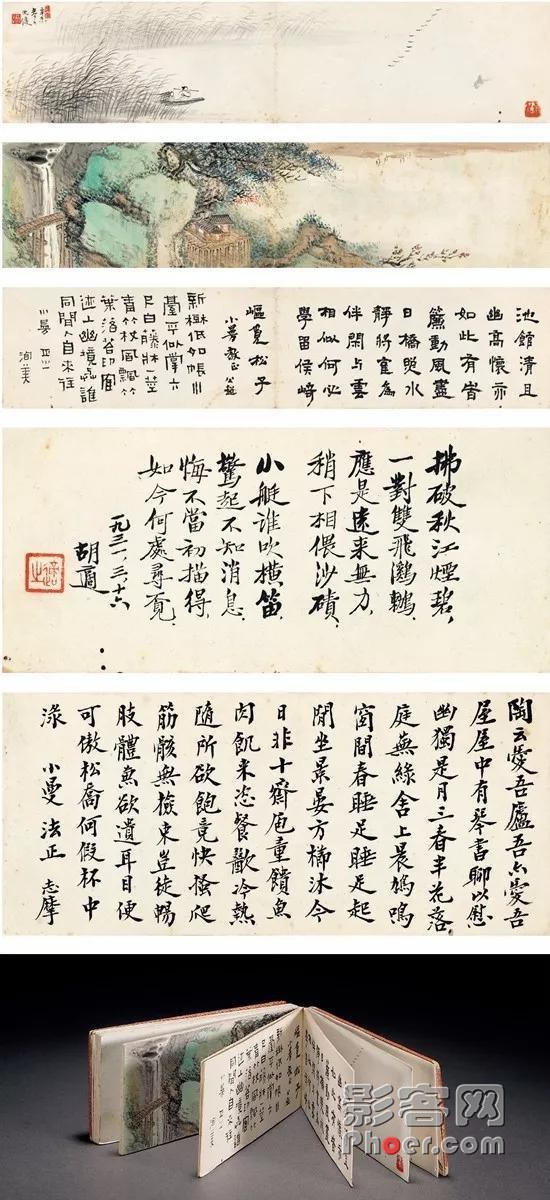 池館清且
幽高懷亦
如此有時
簾動風盡
日橋照水
靜將鶴為
伴閑与雲
相似何必
學留侯崎
嶇覓松子
小曼教正
新樹低如帳小
臺平似掌六
尺白藤牀一莖
青竹杖風飄竹
落苔印鶴
迹上幽境與誰
同閒人自來往
小曼 正
洵美
拂破秋江煙碧,
一對雙飛鸂鶒,
應是遠來無力,
稍下相偎沙磧,
小艇誰吹橫笛,
驚起不知消息,
悔不當初描得,
如今何處尋覓,
一九三一,三,十六
胡適
陶云愛吾廬吾亦愛吾
屋屋中有琴書聊以慰
幽獨是月三春半花落
庭蕪綠舍上晨鳩鳴
窗間春睡足睡足起
閒坐景晏方櫛沐今
日非十齋庖童饋魚
肉飢來恣餐歠冷熱
隨所欲飽竟快搔爬
筋骸無檢束豈徒暢
肢體兼欲遺耳目便
可傲松喬何假杯中
淥 小曼 法正 志摩
影客网
Phoer.com